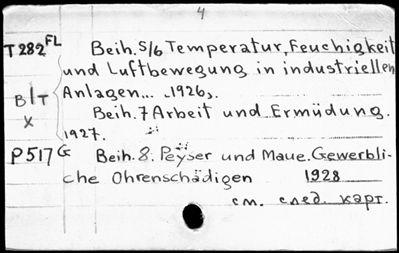 4
T282 FL Beih. 5/6 Temperatur, Feuchigkeit
und Luftbewegung in industriellen
B/T Anlagen... 1926.
X Beih. 7 Arbeit und Ermüdung.
1927.
P517 G Beih. 8. Peyser und Maue. Gewerbli-
che Ohrenschädigen 1928
см. след. карт.